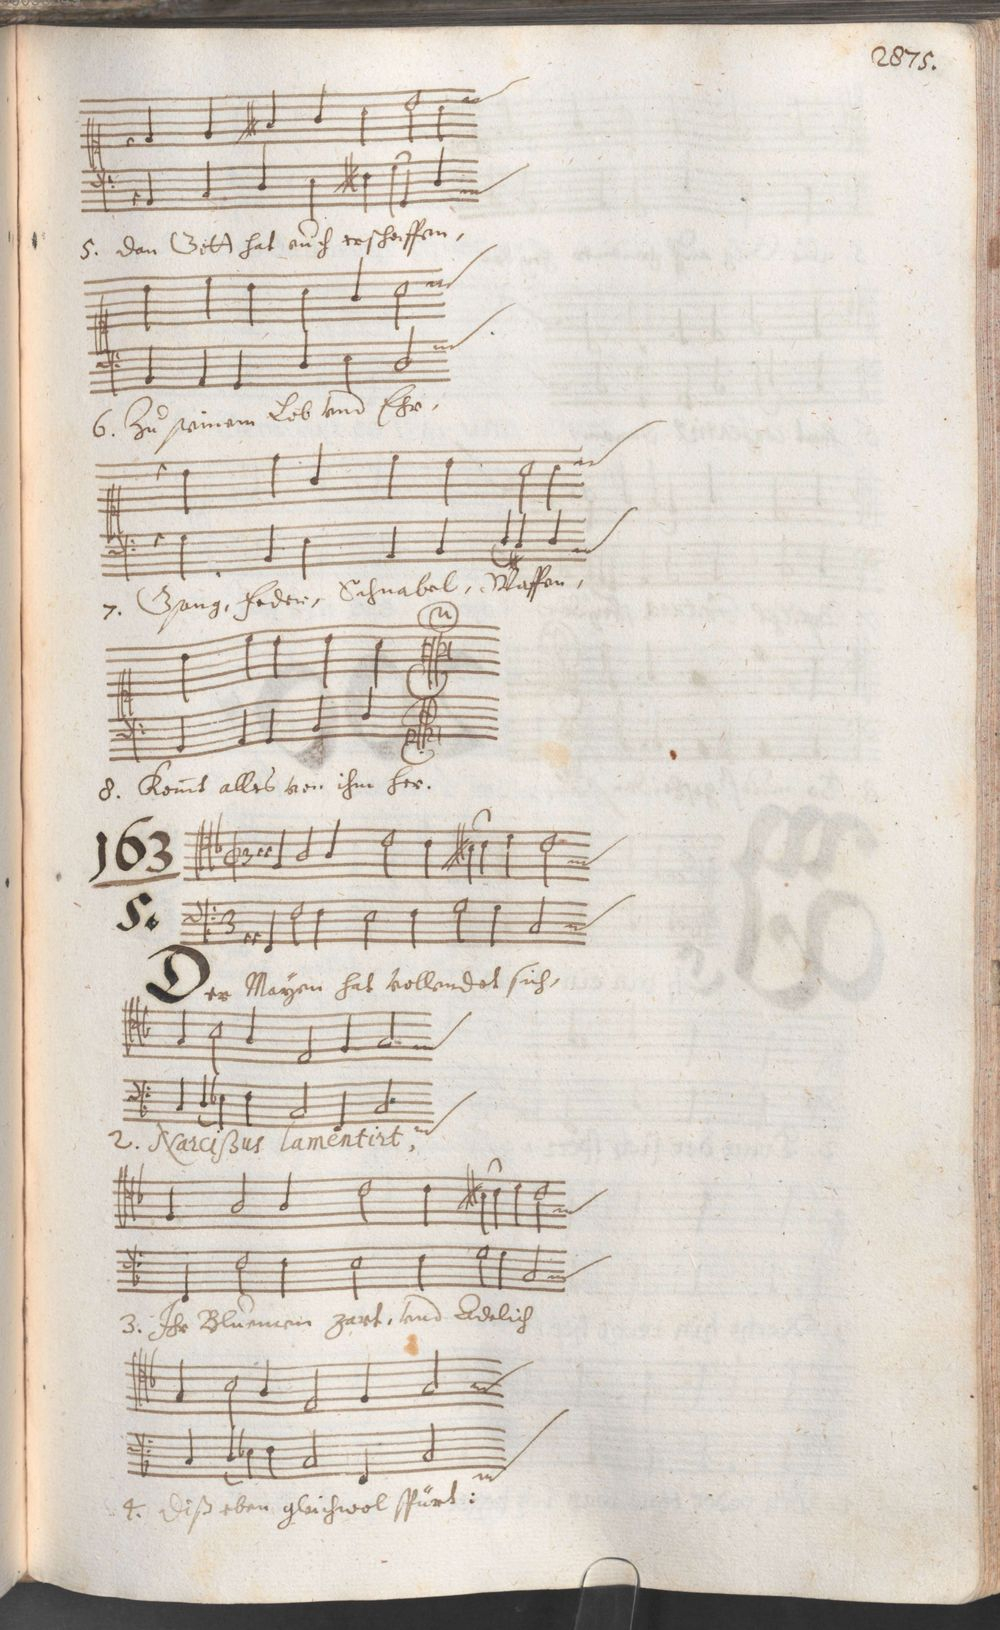 2875.
5. dan Gott hat euch erschaffen,
6. Zu seinem Lob und Ehr,
7. Gsang, Feder, Schnabel, Waffen,
8. Komt alles von ihm her.
163
5.
Der Mayen hat vollendet sich,
2. Narcißus lamentirt,
3. Ihr Bluemein zart, und Adelich
4. diß eben gleichwol spürt: